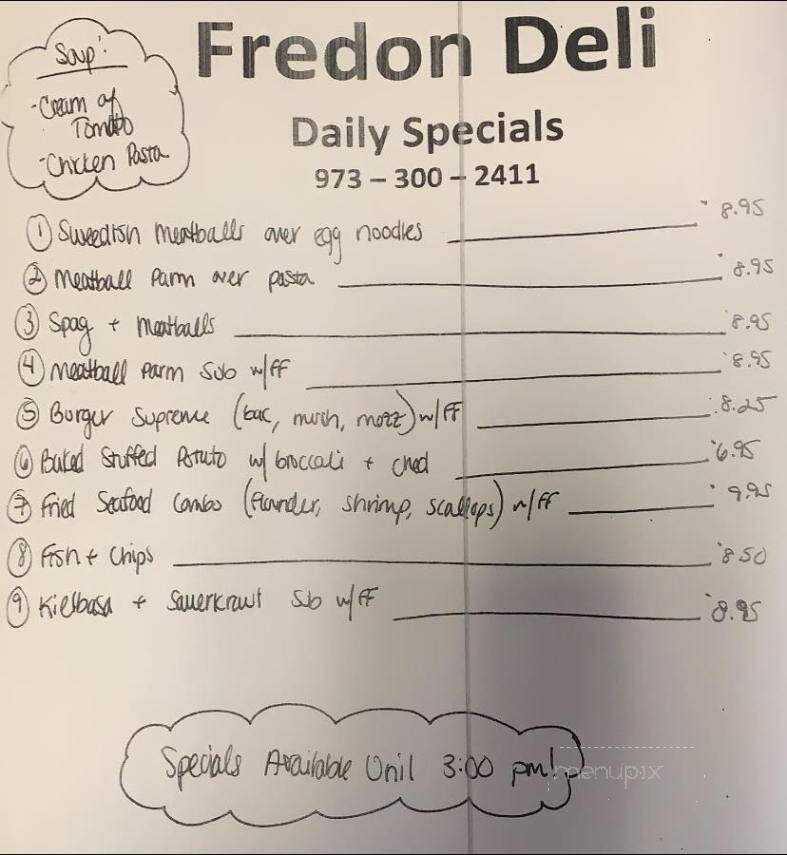 Soup:
- Cream of
Tomato
- Chicken Pasta
Fredon Deli
Daily Specials
973 – 300 – 2411
① Sweedish meatballs over egg noodles 8.95
② Meatball Parm over pasta 8.95
③ Spag + meatballs 8.95
④ meatball Parm Sub w/ff 8.95
⑤ Burger Supreme (bac, mush, mozz) w/ff 8.25
⑥ Baked Stuffed Potato w/ broccoli + ched 6.95
⑦ Fried Seafood Combo (flounder, shrimp, scallops) w/ff 9.95
⑧ Fish + Chips 8.50
⑨ Kielbasa + Sauerkraut Sub w/ff 8.95
Specials Available Unil 3:00 pm!
menupix